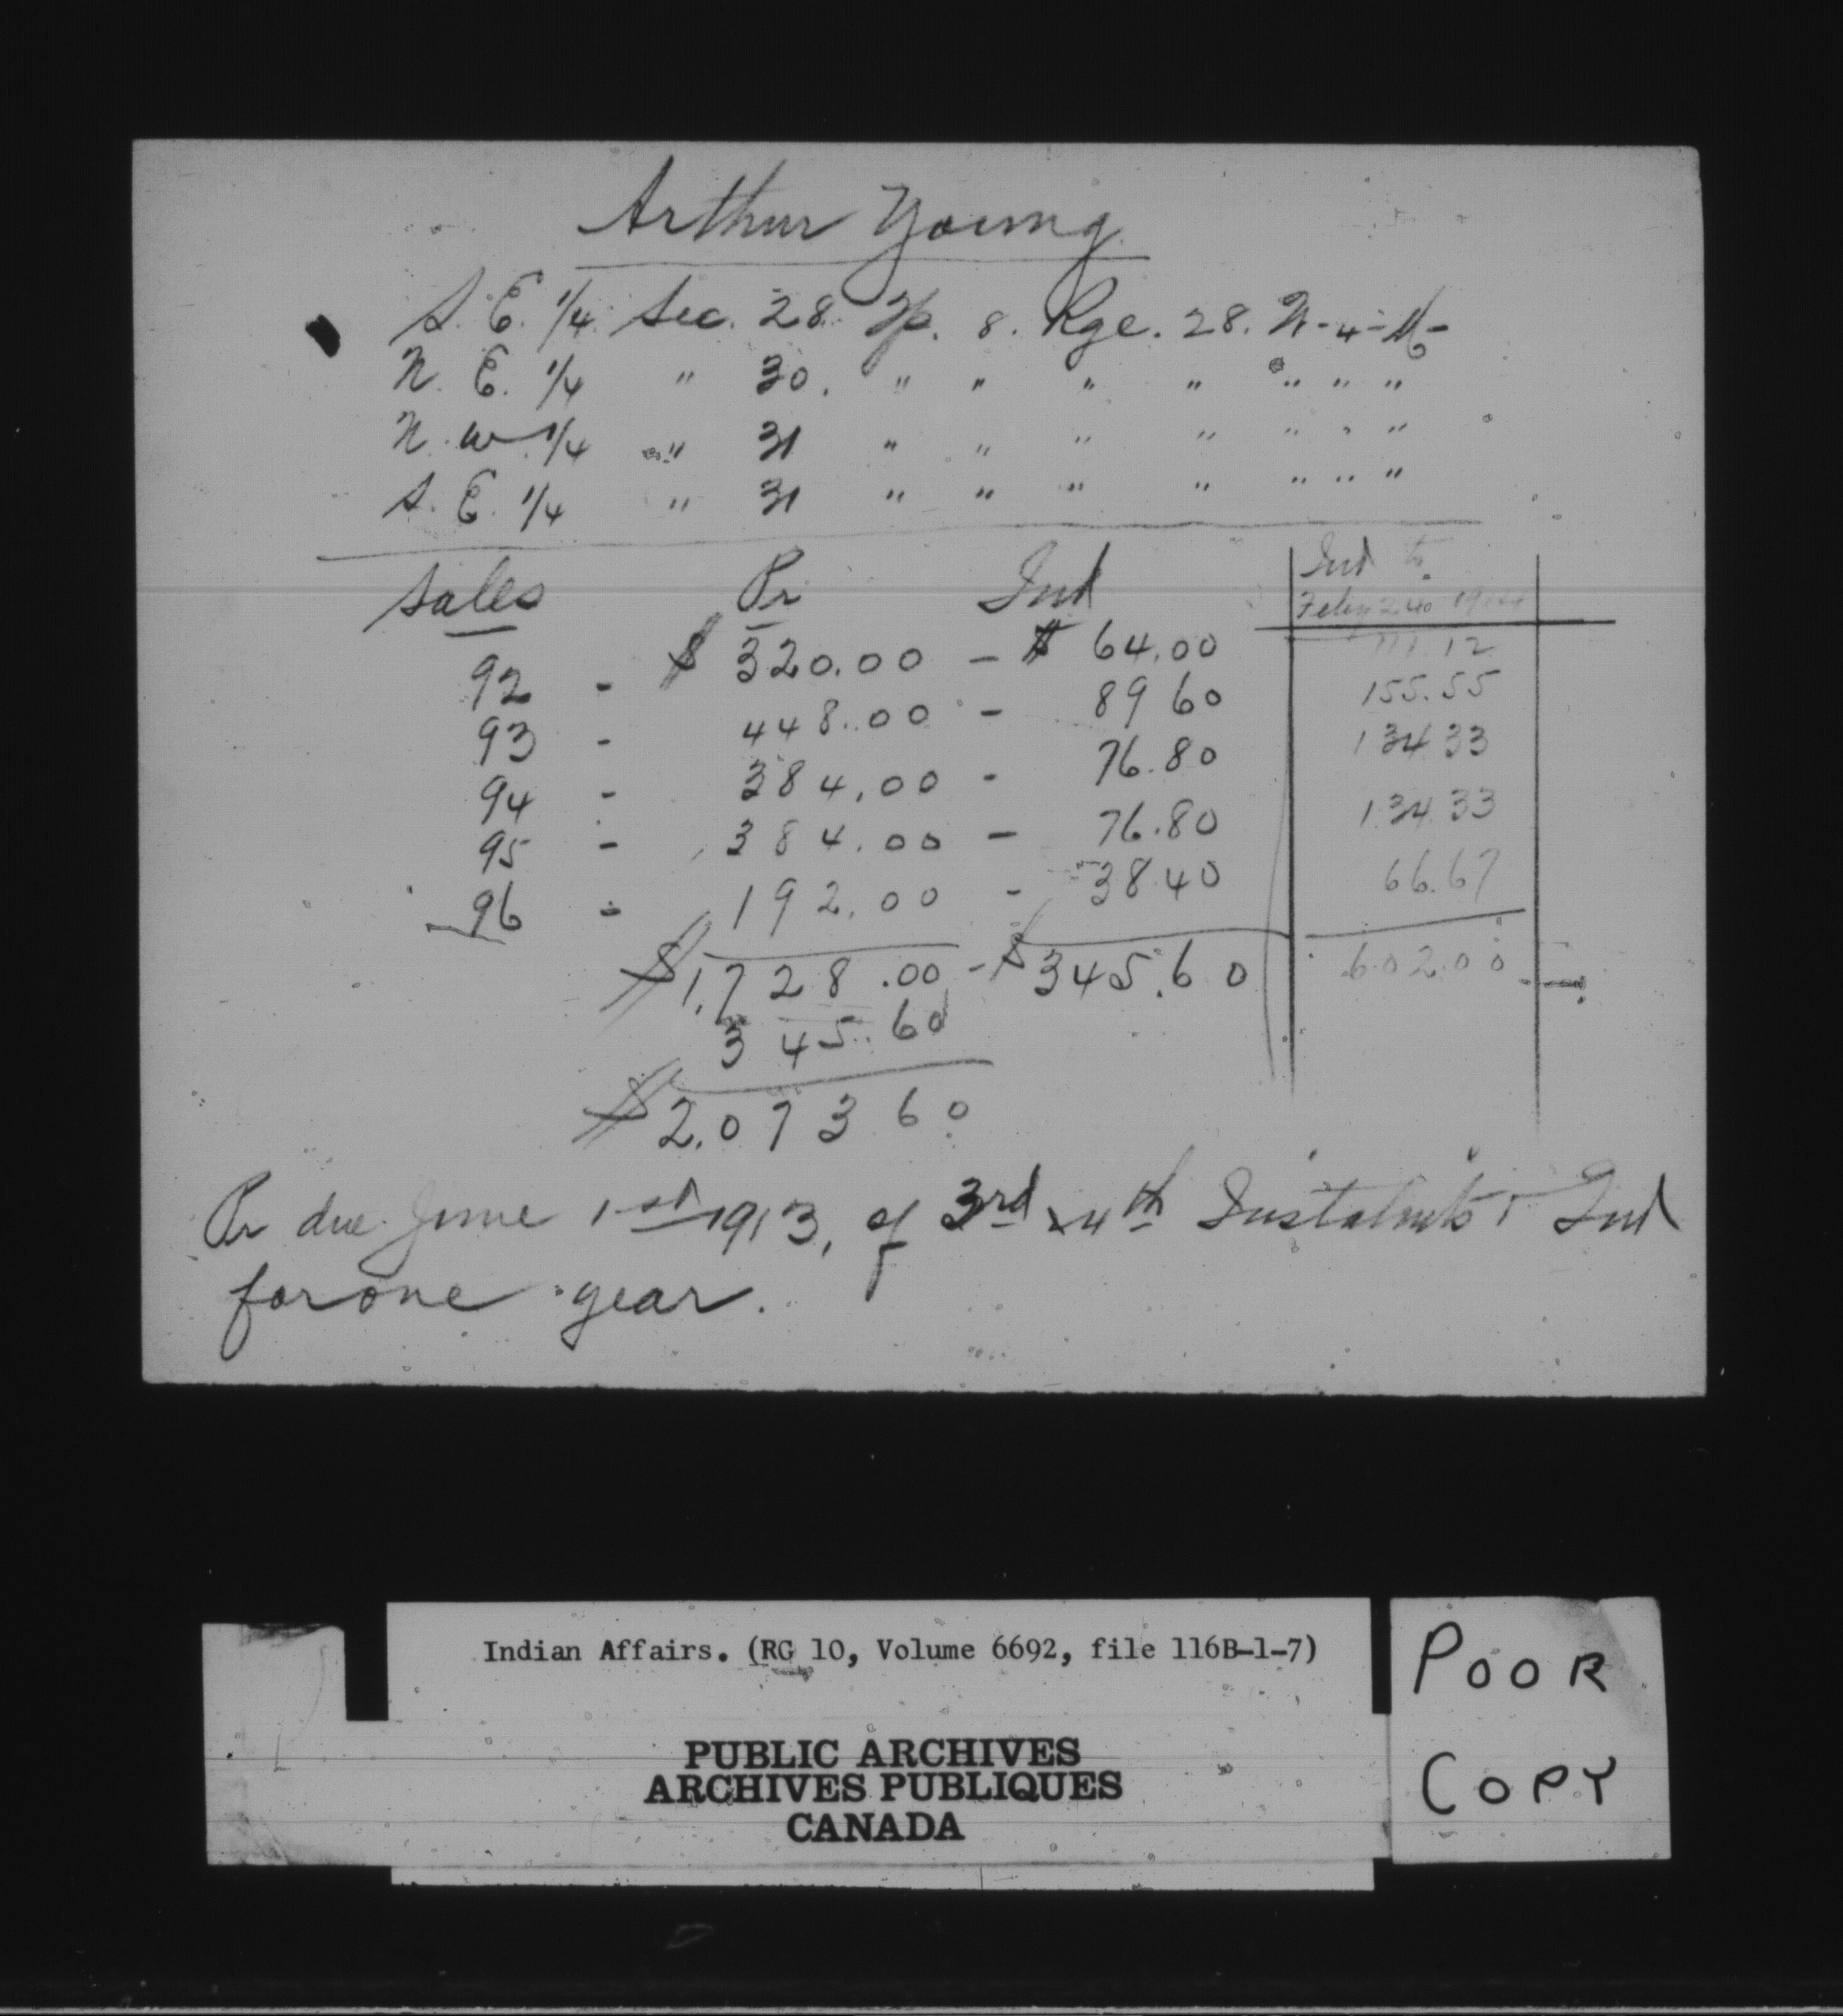 Arthur Young
S. E. 1/4 Sec. 28. Tp. 8. Rge. 28. W-4-M-
N. E. 1/4 " 30. " " " " " " "
N. W. 1/4 " 31 " " " " " " "
S. E. 1/4 " 31 " " " " " " "
Sales Pr Int Int to
Feby 24
92 - $ 320.00 - $ 64.00 111.12
93 - 448.00 - 89 60 155.55
94 - 384.00 - 76.80 134 33
95 - 384.00 - 76.80 134 33
96 - 192.00 - 38 40 66.67
$1,728.00 - $345.60 602.00
345.60
$2.073 60
Pr due June 1st 1913, of 3rd & 4th Instalmts & Int
for one year.
Indian Affairs. (RG 10, Volume 6692, file 116B-1-7)
PUBLIC ARCHIVES
ARCHIVES PUBLIQUES
CANADA
POOR
COPY